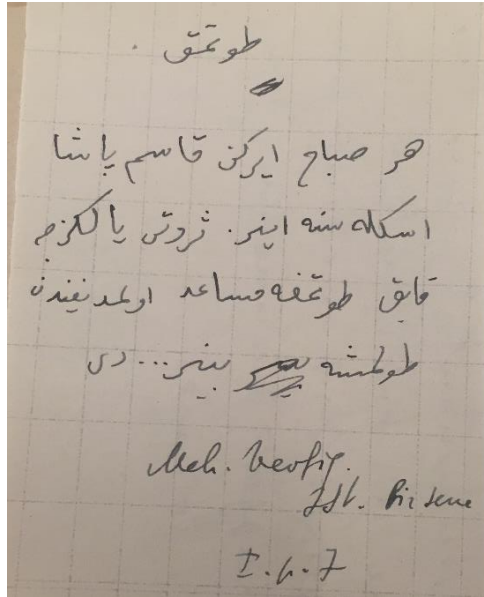 طوتمق .
هر صباح ايركن قاسم پاشا
اسكله سنه اينر. ثروتى يالكزجه
قايق طوتمغه مساعد اولمديغندن
طولمشه بينر... دى
Meh. Tevfiq.
Ist. Bir sene
I. s. 7